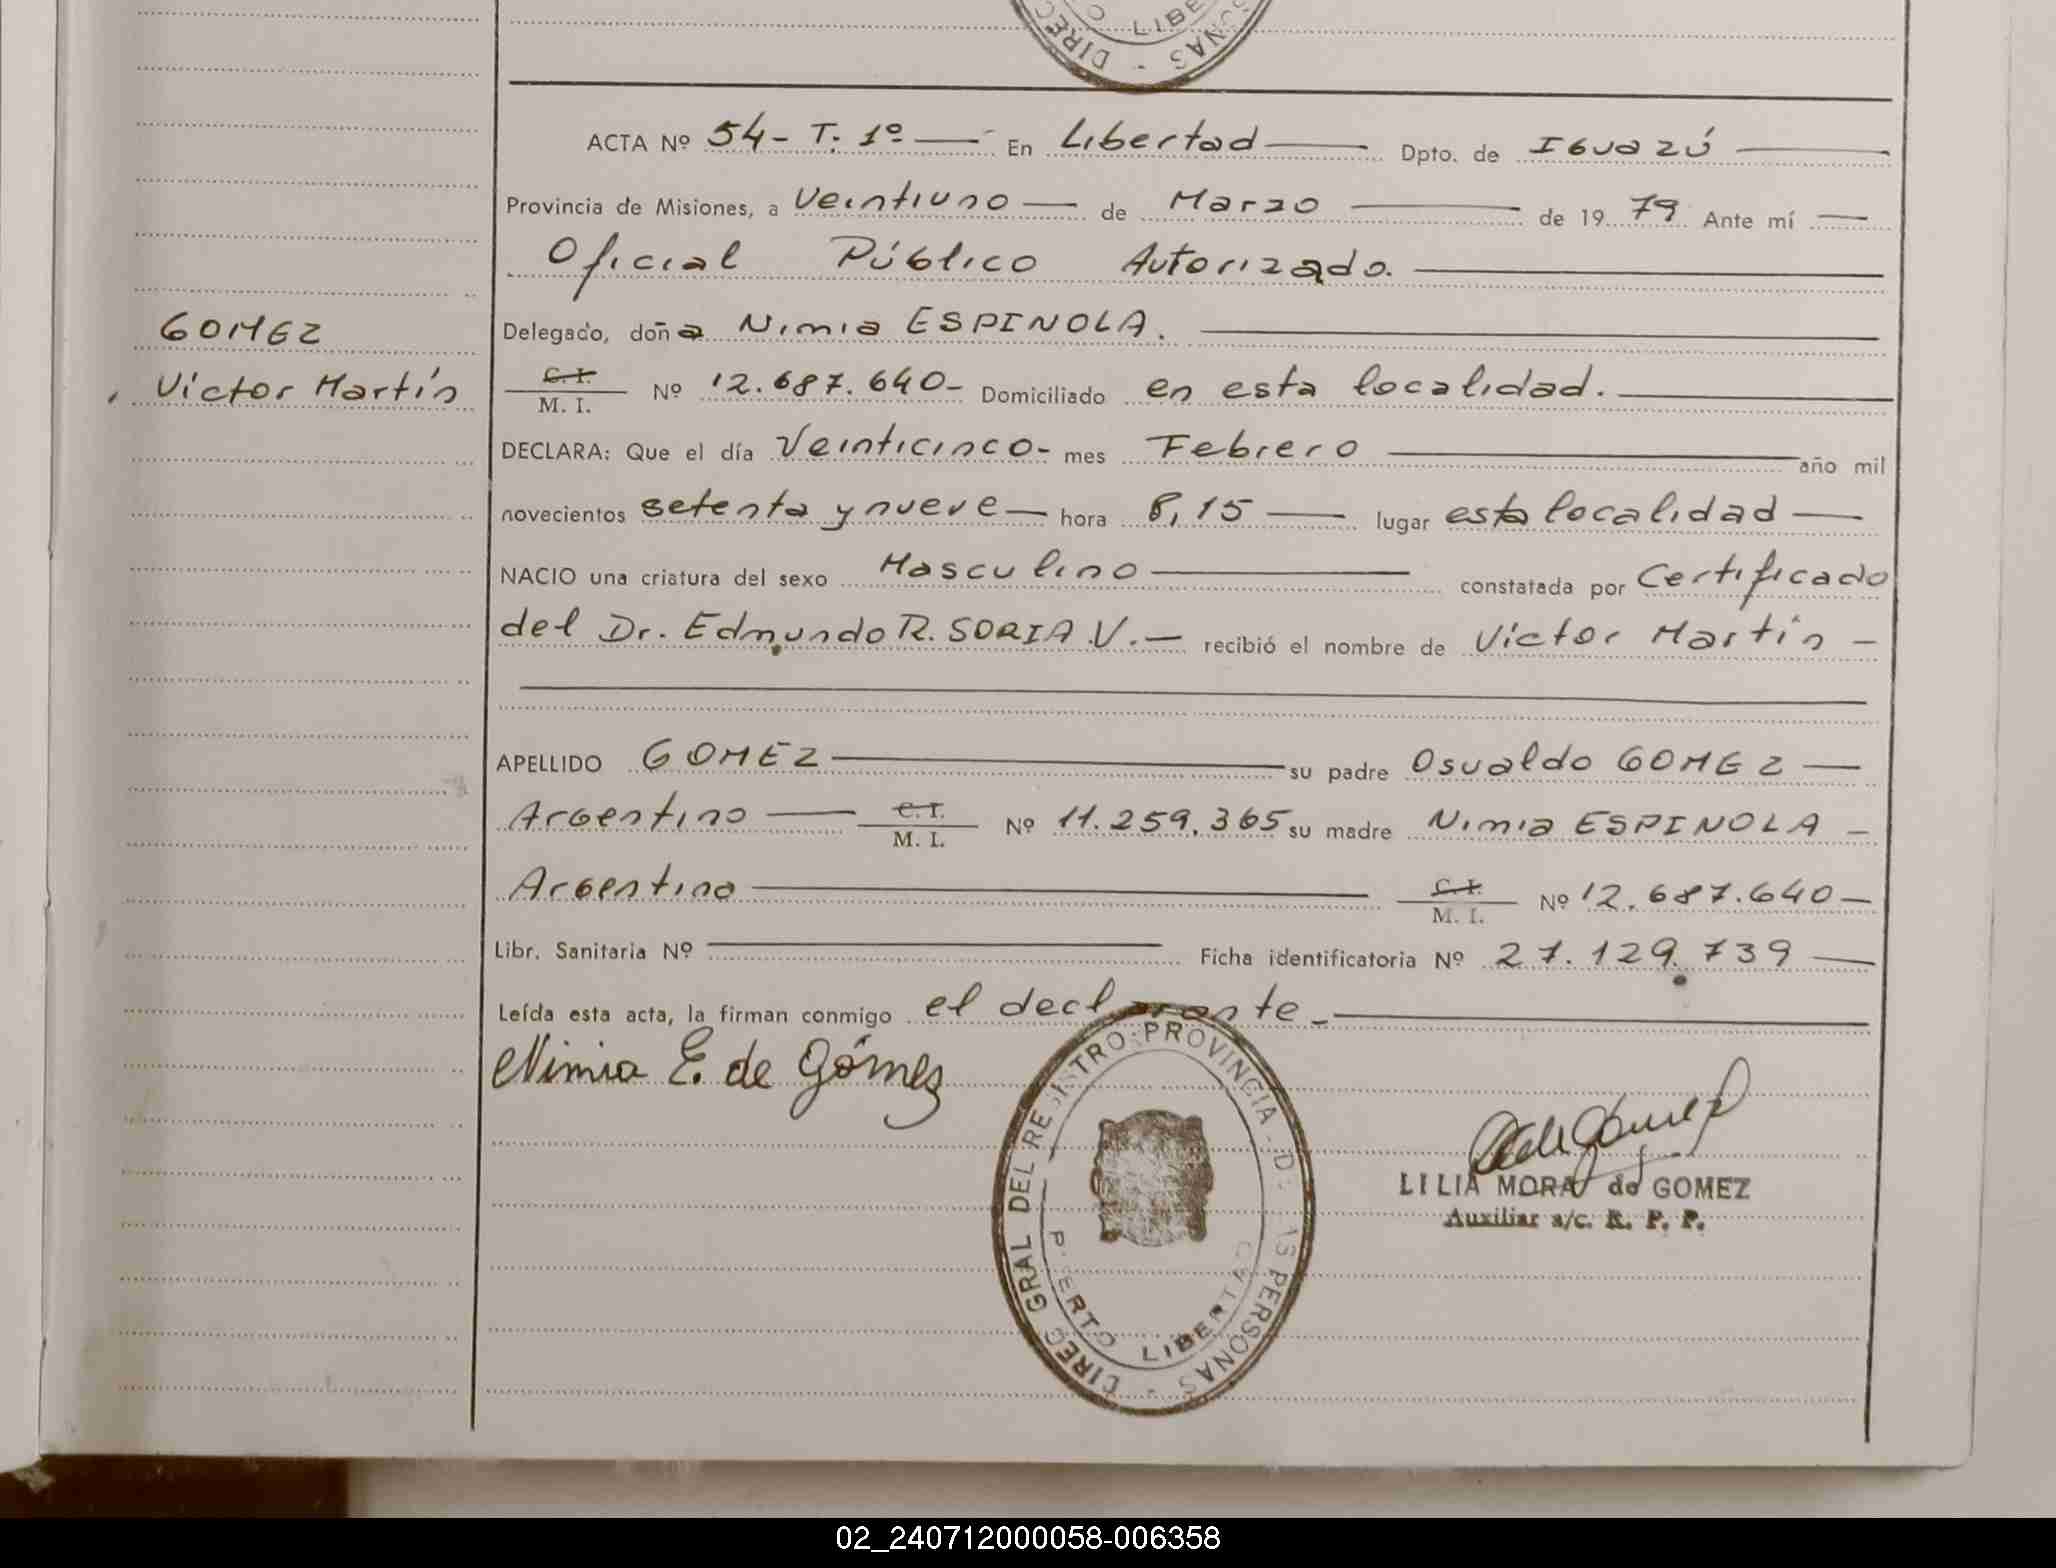 DIREC
LIBE
SONAS -
ACTA Nº 54- T. 1º — En Libertad — Dpto. de IGUAZÚ —
Provincia de Misiones, a veintiuno — de Marzo — de 1979 Ante mí —
Oficial Público Autorizado. —
GOMEZ
Victor Martín
Delegado, doña Nimia ESPINOLA. —
C. I.
M. I. Nº 12.687.640- Domiciliado en esta localidad. —
DECLARA: Que el día Veinticinco- mes Febrero — año mil
novecientos setenta y nueve — hora 8,15 — lugar esta localidad —
NACIO una criatura del sexo Masculino — constatada por Certificado
del Dr. Edmundo R. SORIA V. — recibió el nombre de Victor Martín —
APELLIDO GOMEZ — su padre Osvaldo GOMEZ —
Argentino — C. I.
M. I. Nº 11.259.365 su madre Nimia ESPINOLA —
Argentina — C. I.
M. I. Nº 12.687.640 —
Libr. Sanitaria Nº — Ficha identificatoria Nº 27.129.739 —
Leída esta acta, la firman conmigo el declarante. —
Nimia E. de Gómez
DIREC GRAL DEL REGISTRO PROVINCIAL DE LAS PERSONAS -
PUERTO LIBERTAD
LILIA MORA de GOMEZ
Auxiliar a/c. R. P. P.
02_240712000058-006358